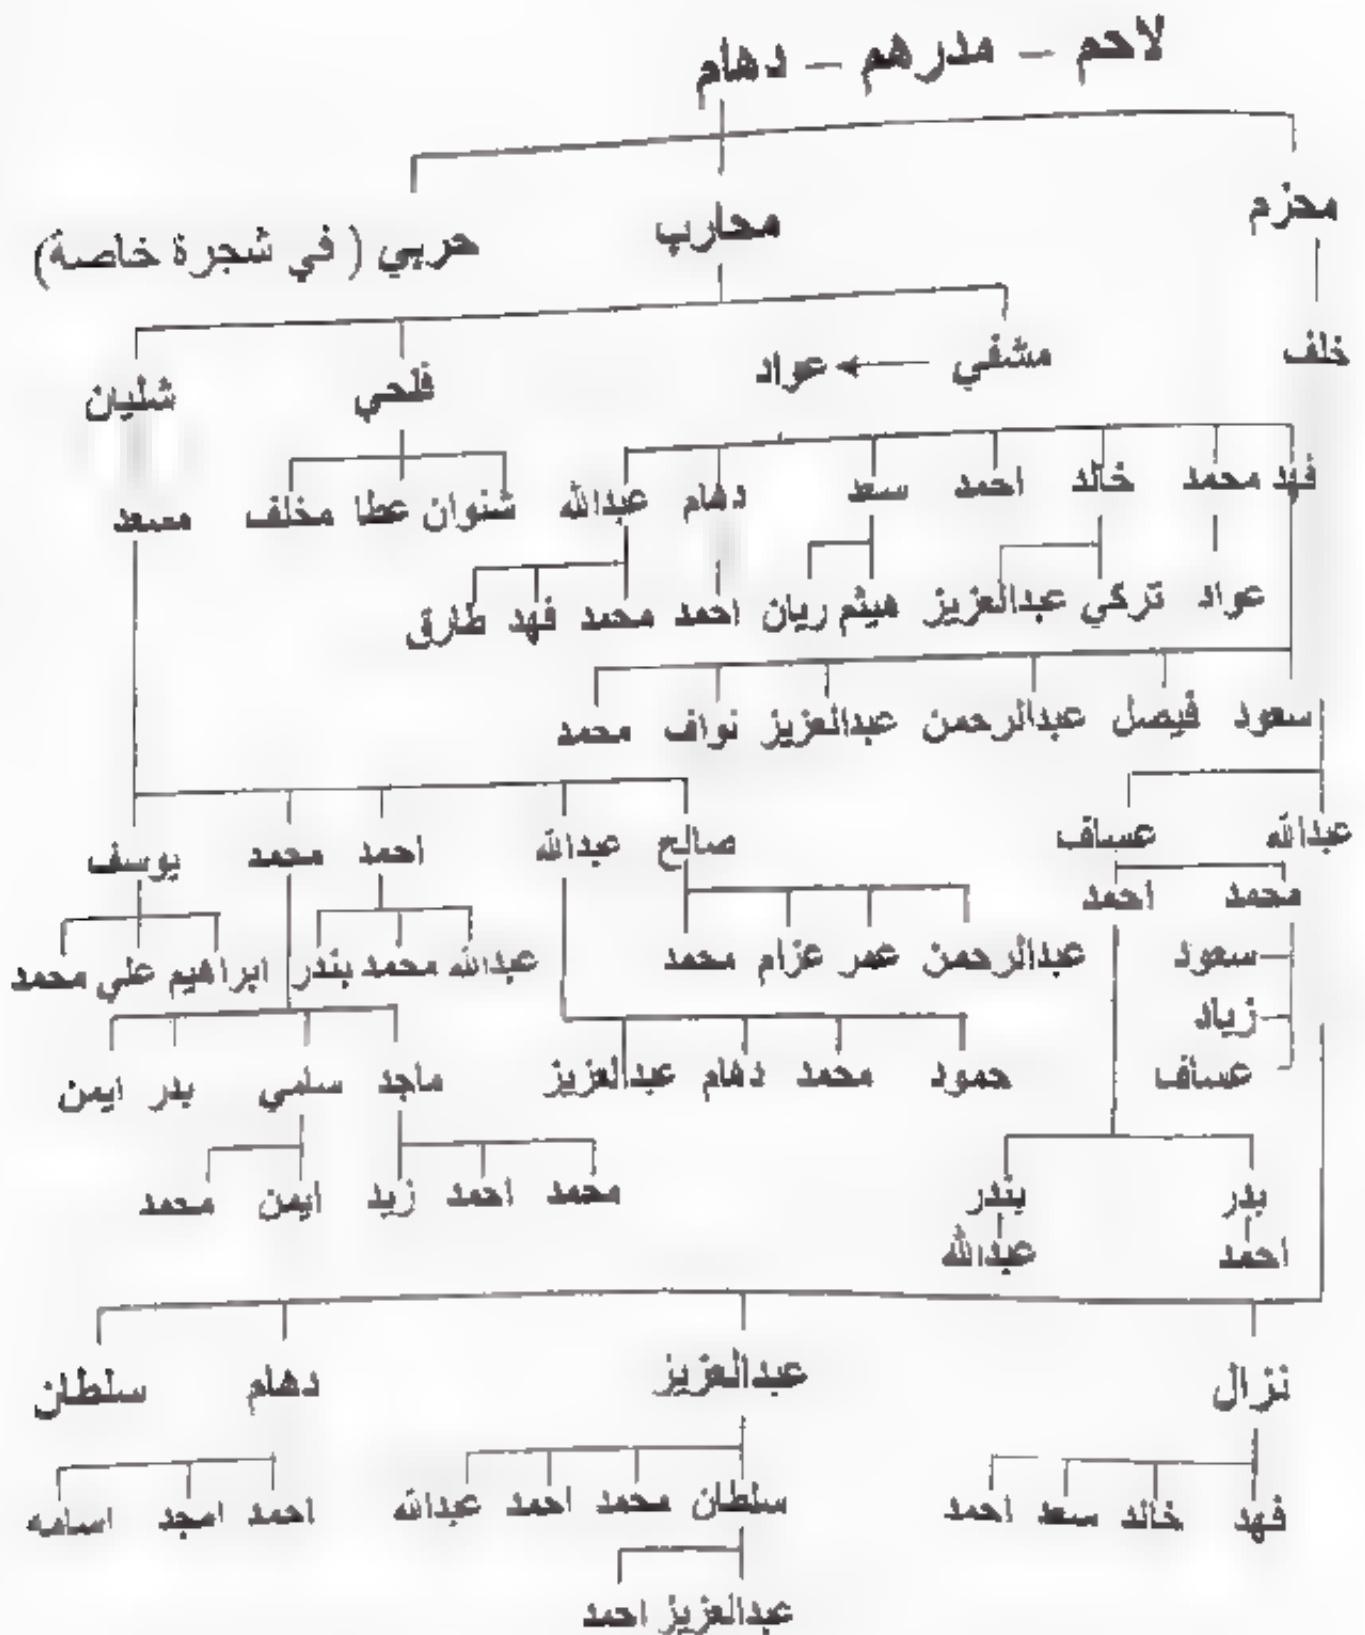 لاحم – مدرهم – دهام
محزم محارب حربي ( في شجرة خاصة)
خلف مشفي عواد فلحي شليان
فهد محمد خالد احمد سعد دهام عبدالله شنوان عطا مخلف مسعد
عواد تركي عبدالعزيز هيثم ريان احمد محمد فهد طارق
سعود فيصل عبدالرحمن عبدالعزيز نواف محمد
عبدالله عساف صالح عبدالله احمد محمد يوسف
محمد احمد
سعود عبدالرحمن عمر عزام محمد عبدالله محمد بندر ابراهيم علي محمد
زياد
عساف حمود محمد دهام عبدالعزيز ماجد سلمي بدر ايمن
بدر بندر محمد احمد زيد ايمن محمد
احمد عبدالله
نزال عبدالعزيز دهام سلطان
فهد خالد سعد احمد سلطان محمد احمد عبدالله احمد امجد اسامه
عبدالعزيز احمد